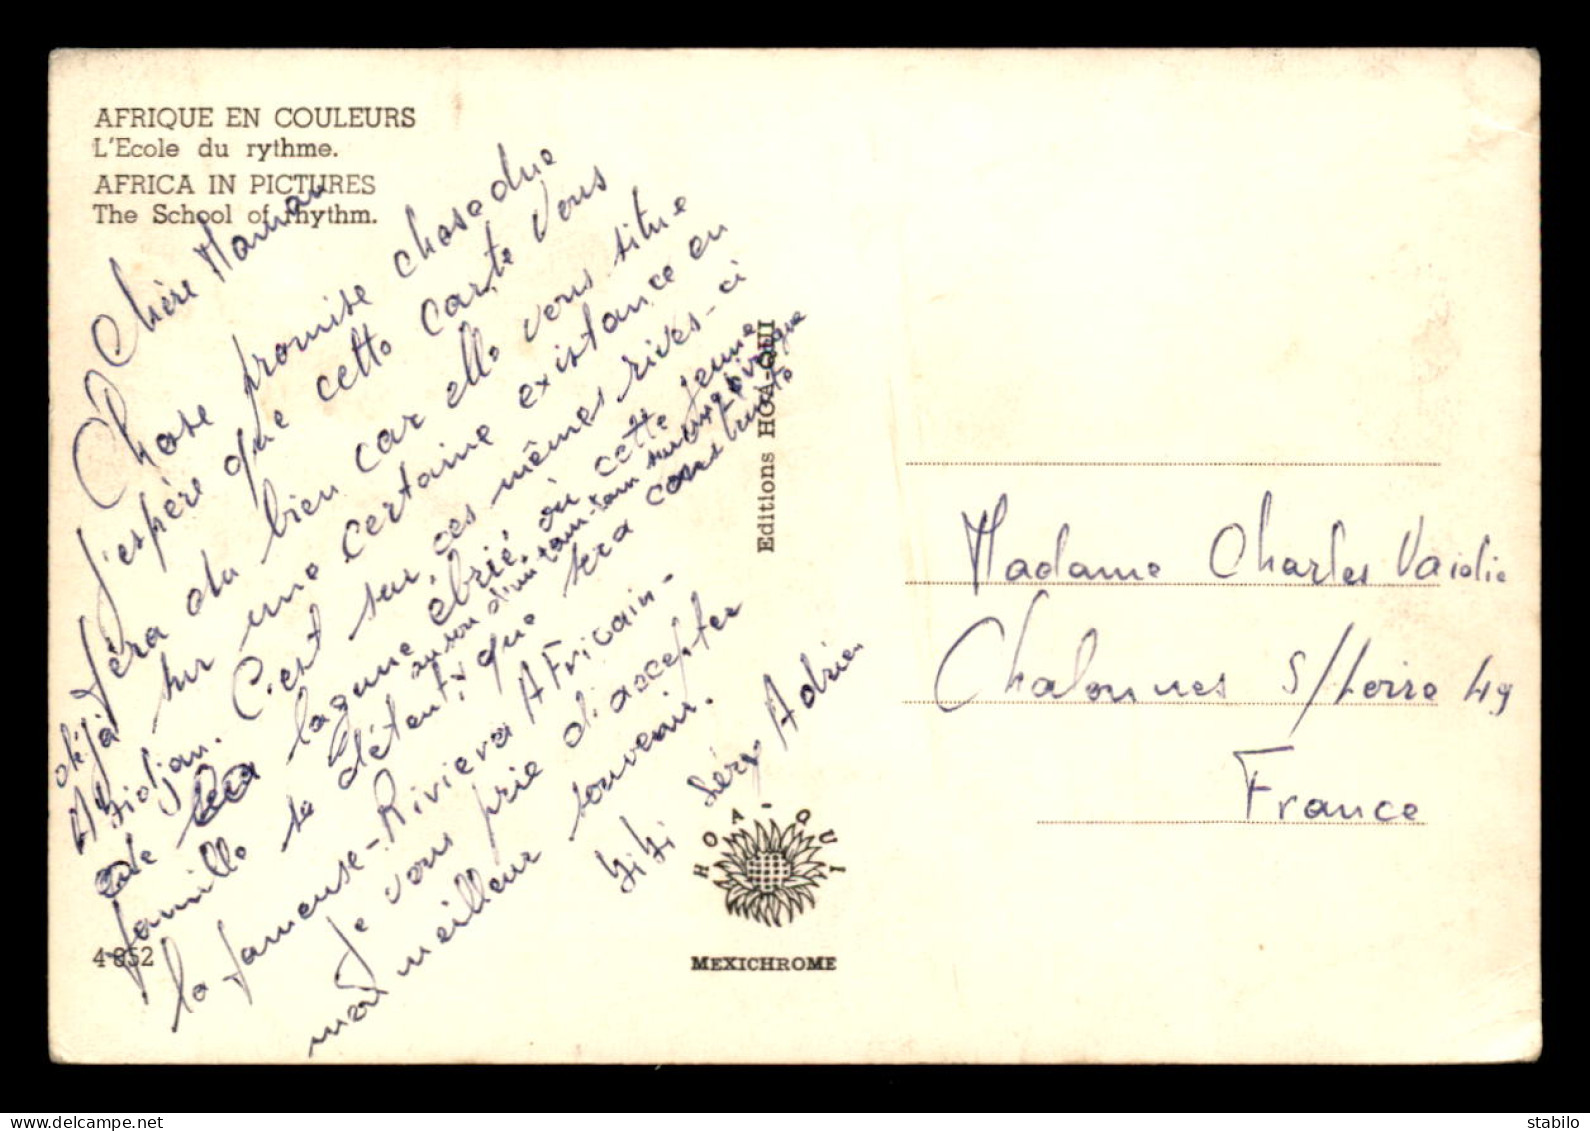 AFRIQUE EN COULEURS
L'Ecole du rythme.
AFRICA IN PICTURES
The School of rhythm.
Chère Maman
Chose promise chose due
J'espère que cette carte Vous
fera du bien car elle vous situe
déjà sur une certaine existance en
Abidjan. C'est sur ces mêmes rives-ci
de la lagune ébrié, où cette jeune
au son d'un tam-tam sur une pirogue
famille se détend, que sera construite
la fameuse-Riviera AFricain-
Je vous prie d'accepter
mon meilleur souvenir.
Zizi Serge Adrien
4 852
Editions HOA-QUI
HOA-QUI
MEXICHROME
Madame Charles
Chalonnes S/Loire 49
France
delcampe.net
stabilo